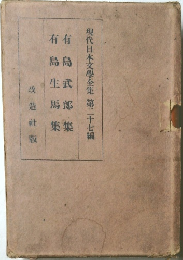 現代日本文學全集 第二十七編
有島武郎集
有島生馬集
改造社版